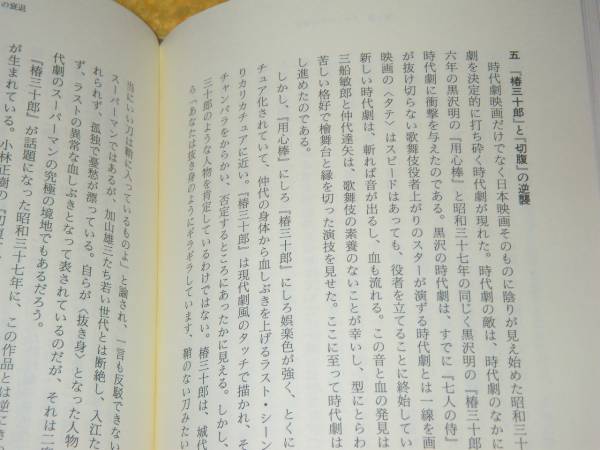 五 『椿三十郎』と『切腹』の逆襲
時代劇映画だけでなく日本映画そのものに陰りが見え始めた昭和三十
劇を決定的に打ち砕く時代劇が現れた。時代劇の敵は、時代劇のなかに
六年の黒沢明の『用心棒』と昭和三十七年の同じく黒沢明の『椿三十郎
時代劇に衝撃を与えたのである。黒沢の時代劇は、すでに『七人の侍』
が抜け切らない歌舞伎役者上がりのスターが演ずる時代劇とは一線を画
映画の〈タテ〉はスピードはあっても、役者を立てることに終始してい
新しい時代劇は、斬れば音が出るし、血も流れる。この音と血の発見は
三船敏郎と仲代達矢は、歌舞伎の素養のないことが幸いし、型にとらわ
苦しい格好で檜舞台と縁を切った演技を見せた。ここに至って時代劇は
し進めたのである。
しかし、『用心棒』にしろ『椿三十郎』にしろ娯楽色が強く、とくに
チュア化されていて、仲代の身体から血しぶきを上げるラスト・シーン
りカリカチュアに近い。『椿三十郎』は現代劇風のタッチで描かれ、そ
チャンバラをからかい、否定するところにあったかに見える。しかし、
三十郎のような人物を肯定しているわけではない。椿三十郎は、城代
ら「あなたは抜き身のようにギラギラしています、鞘のない刀みたい
の衰退
当にいい刀は鞘に入っているものよ」と諭され、一言も反駁できない
スーパーマンではあるが、加山雄三たち若い世代とは断絶し、入江た
れられず、孤独で憂愁が漂っている。自らが〈抜き身〉となった人物
ず、ラストの異常な血しぶきとなって表されているのだが、それは二
代劇のスーパーマンの究極の境地でもあるだろう。
『椿三十郎』が話題になった昭和三十七年に、この作品とは逆に
が生まれている。小林正樹の